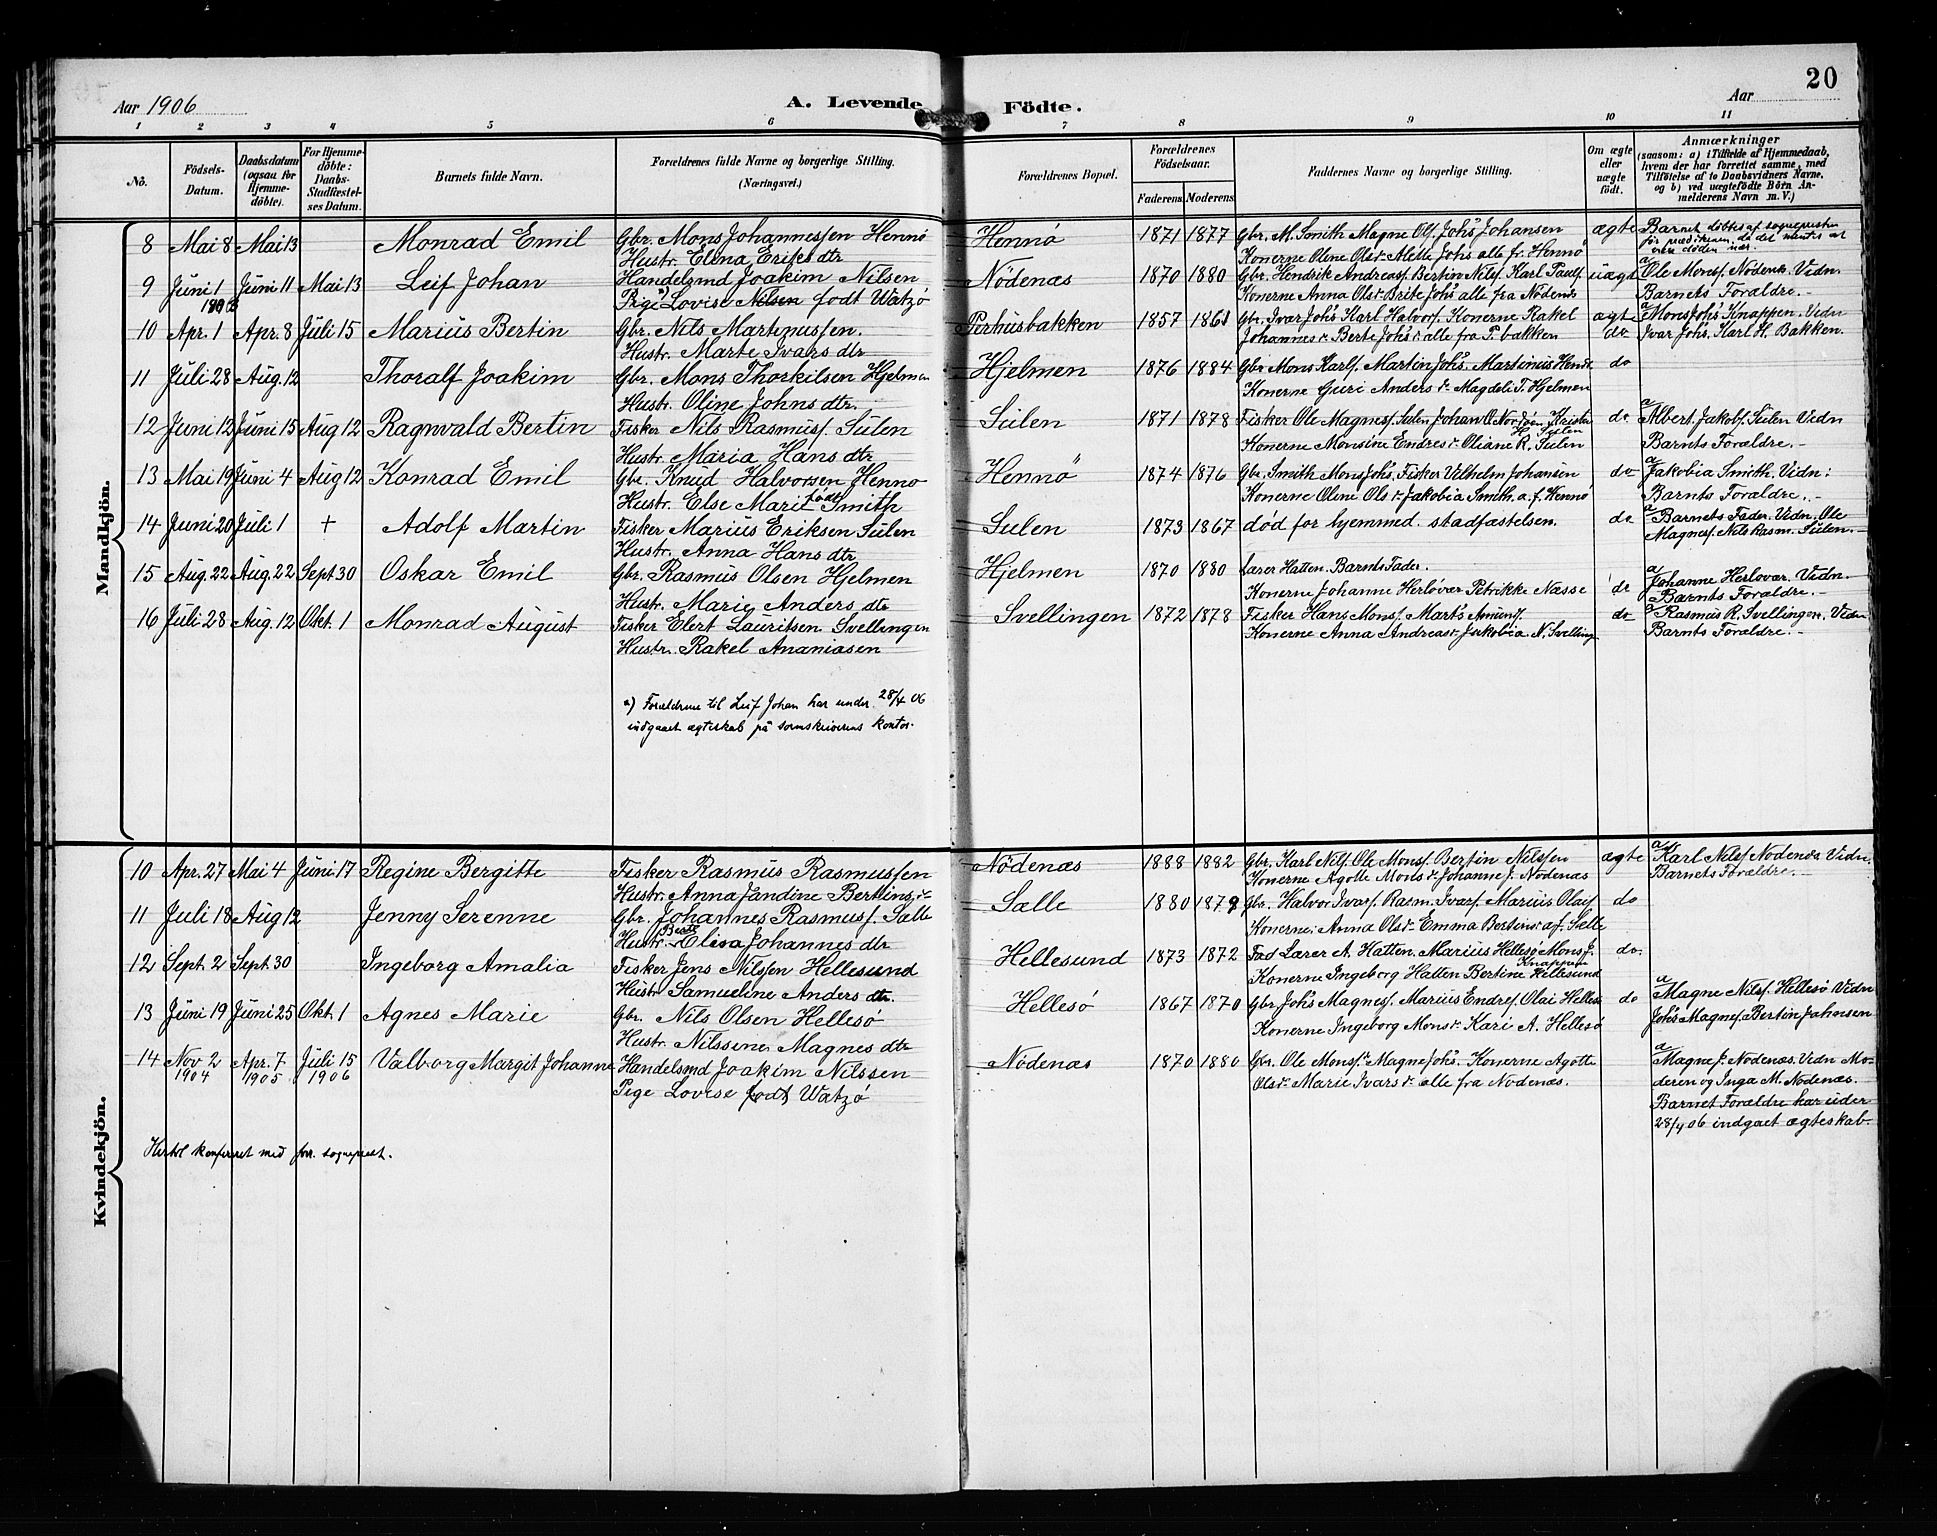 20
Aar 1906
A. Levende Födte.
Aar
1 2 3 4 5 6 7 8 9 10 11
No.
Födsels-Datum.
Daabsdatum (ogsaa for Hjemme-döbte).
For Hjemme-döbte: Daabs-Stadfæstel-ses Datum.
Barnets fulde Navn.
Forældrenes fulde Navne og borgerlige Stilling. (Næringsvei.)
Forældrenes Bopæl.
Forældrenes Födselsaar.
Faderens Moderens
Faddernes Navne og borgerlige Stilling.
Om ægte eller uægte födt.
Anmærkninger
(saasom: a) i Tilfælde af Hjemmedaab,
hvem der har forrettet samme, med
Tilföielse af to Daabsvidners Navne,
og b) ved uægtefödte Börn An-
melderens Navn m. V.)
Mandkjön.
8 Mai 8 Mai 13 Monrad Emil Gbr. Mons Johannessen Hennö Hennö 1871 1877 Gbr. M. Smith Magne Ols. Johs Johansen ægte Barnet döbtes af sognepresten
Hustr. Elina Eriks dtr Konerne Olene Olsdr Alette Johs alle fr. Hennö før prædikenen, da det mentes at være döden nær.
9 Juni 1 Juni 11 Mai 13 Leif Johan Handelsmd Joakim Nilsen Nödenæs 1870 1880 Gbr. Hendrik Andreass. Bertin Nilss. Karl Pauls uægt a Ole Monss. Nödenæs. Vidn.
Pige a) Lovise Nilsen födt Watzö Konerne Anna Olsdr Brite Johs alle fra Nödenæs Barnets Forældre.-
10 Apr. 1 Apr. 8 Juli 15 Marius Bertin Gbr. Nils Martinussen. Perhusbakken 1857 1861 Gbr. Ivar Johs Karl Halvors. Konerne Rakel ægt a Mons Johs Knappen. Vidn
Hustr. Marte Ivars dtr Johannesdr Berte Johsdr alle fra P. bakken do Ivar Johs. Karl H. Bakken.
11 Juli 28 Aug. 12 Thoralf Joakim Gbr. Mons Thorkilsen Hjelmen Hjelmen 1876 1884 Gbr Mons Karls. Martin Johs. Martinius Hende do
Hustr. Oline Johns dtr. Konerne Guri Anders dr Magdeli T. Hjelmen
12 Juni 12 Juni 15 Aug 12 Ragnvald Bertin Fisker Nils Rasmuss. Sulen Sulen 1871 1878 Fisker Ole Magness. Sulen Johan O. do a Albert Jakobs. Sulen Vidn
Hustr. Maria Hans dtr Konerne Monsine Endresdr Oliane R. Sulen Barnets Forældre.-
13 Mai 19 Juni 4 Aug 12 Konrad Emil Gbr. Knud Halvorsen Henno Hennö 1874 1876 Gbr. Smith Mons Johs. Fisker Vilhelm Johansen do a Jakobia Smith. Vidn:
Hustr. Else Marie födt Smith Konerne Olene Olsdr Jakobia Smith. a. f. Hennö Barnts Forældre.-
14 Juni 20 Juli 1 + Adolf Martin Fisker Marius Eriksen Sulen Sulen 1873 1867 död for hjemmed. stadfæstelsen. do a Barnets Fader. Vidn. Ole
Hustr. Anna Hans dtr Magness. Nils Rasm. Sulen.-
15 Aug. 22 Aug. 22 Sept 30 Oskar Emil Gbr. Rasmus Olsen Hjelmen Hjelmen 1870 1880 Lærer Hatten. Barnts Fader. a Johanne Herlovær. Vidn.
Hustr. Marie Anders dtr Konerne Johanne Herlövær Petrikke Næsse do Barnts Forældre.-
16 Juli 28 Aug. 12 Okt. 1 Monrad August Fisker Elert Lauritsen Svellingen Svellingen 1872 1878 Fisker Hans Monss. Marts Amunds. do a Rasmus R. Svellingen. Vidn
Hustr. Rakel Ananiasen Konerne Anna Andreasdr Jakobia N. Svelling Barnts Forældre.-
a) Forældrene til Leif Johan har under 28/4 06
indgaaet ægteskab på sorenskriverens kontor.
Kvindekjön.
10 Apr. 27 Mai 4 Juni 17 Regine Bergitte Fisker Rasmus Rasmussen Nödenæs 1888 1882 Gbr. Karl Nils. Ole Monss. Bertin Nilssen ægte a Karl Nilss. Nodenæs Vidn.
Hustr. Anna Jandine Bertins dr Konerne Agotte Monsdr Johanne J. Nodenæs Barnets Forældre.-
11 Juli 18 Aug 12 Jenny Serenne Gbr. Johannes Rasmuss. Sælle Sælle 1880 1879 Gbr. Halvor Ivars. Rasm. Ivars. Marius Olaf do
Hustr. Berte Elisa Johannes dtr Konerne: Anna Olsdr Emma Bertinsdr af. Sælle
12 Sept. 2 Sept. 30 Ingeborg Amalia Fisker Jens Nilssen Hellesund Hellesund 1873 1872 Fad Lærer A. Hatten. Marius Hellesø Mons J. Knappen do.
Hustr Samueline Anders dtr. Konerne Ingeborg Hatten Bertine Hellesund
13 Juni 19 Juni 25 Okt. 1 Agnes Marie Gbr. Nils Olsen Hellesö Hellesö 1867 1870 Gbr. Johs Magness. Marius Endres. Olai Helles do a Magne Nilss. Hellesö Vidn
Hustr. Nilssine Magnes dtr Konerne Ingeborg Monsdr Kari A. Hellesö Johs Magness. Bertin Johnsen
14 Nov. 2 1904 Apr. 7 1905 Juli 15 1906 Valborg Margit Johanne Handelsmd Joakim Nilssen Nödenæs 1870 1880 Gbr. Ole Monss. Magne Johs. Konerne Agotte do a Magne J. Nodenæs. Vidn Mo-
Pige Lovise födt Watzö Olsdr Marie Ivarsdr alle fra Nodenæs. deren og Inga M. Nodenæs.
Barnet Forældre har under
28/4 06 indgaet ægteskab-
Hertil konfereret med for. sogneprest.